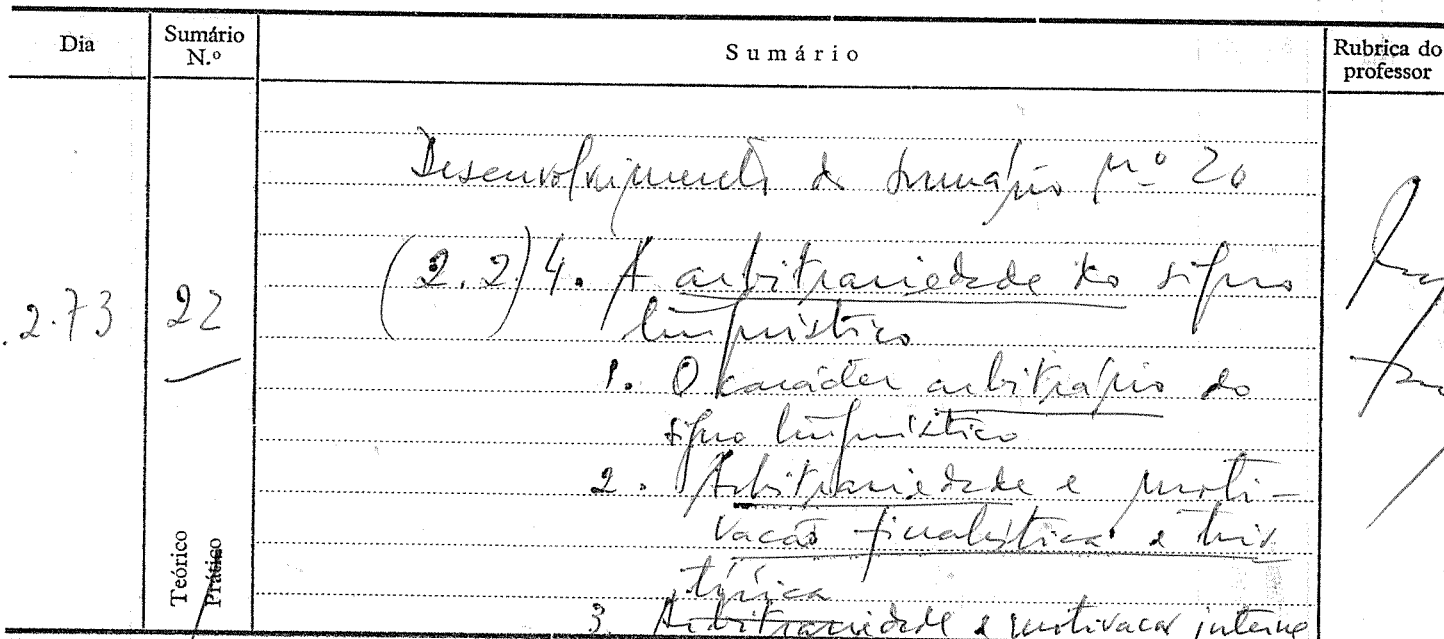 Dia Sumário N.º Sumário Rubrica do professor
Desenvolvimento do sumário nº 20
.2.73 22 (2.2) 4. A arbitrariedade do signo
linguístico
1. O carácter arbitrário do
signo linguístico
2. Arbitrariedade e moti-
vação finalística e his
tórica
3. Arbitrariedade e motivação interna
Teórico
Prático